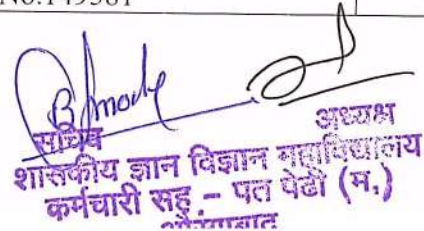 No.149381
सचिव
अध्यक्ष
शासकीय ज्ञान विज्ञान महाविद्यालय
कर्मचारी सह - पत पेढी (म.)
औरंगाबाद